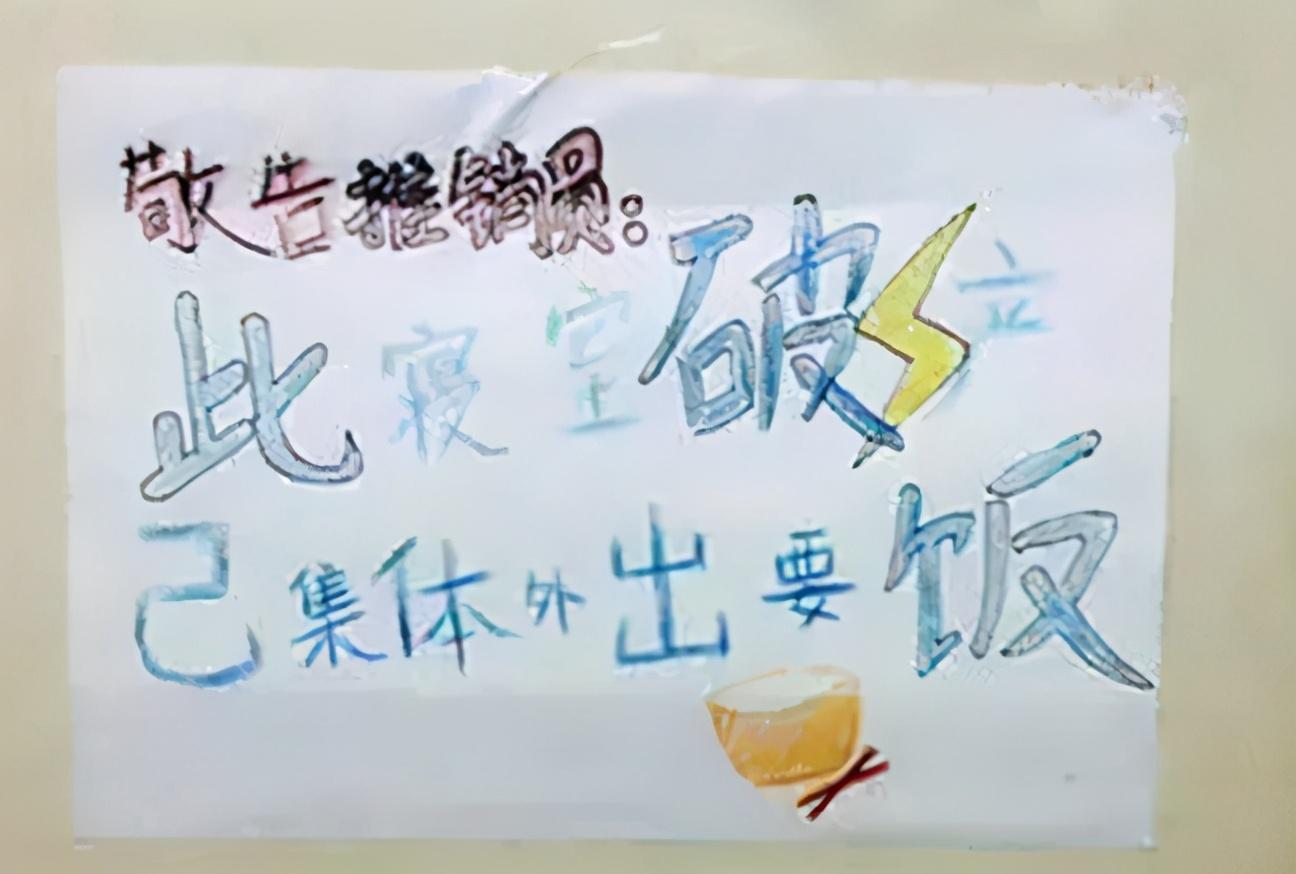 敬告推销员:
此寝室破
己集体外出要饭